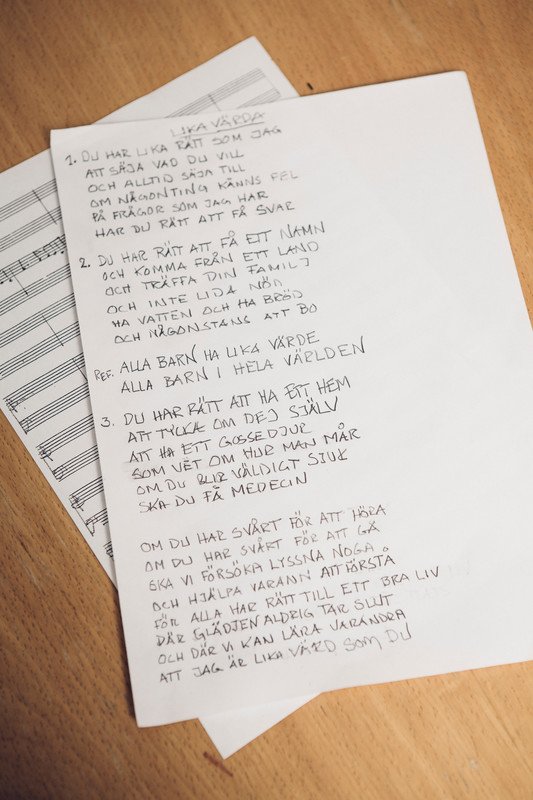 LIKA VÄRDA
1. DU HAR LIKA RÄTT SOM JAG
ATT SÄJA VAD DU VILL
OCH ALLTID SÄJA TILL
OM NÅGONTING KÄNNS FEL
PÅ FRÅGOR SOM JAG HAR
HAR DU RÄTT ATT FÅ SVAR
2. DU HAR RÄTT ATT FÅ ETT NAMN
OCH KOMMA FRÅN ETT LAND
OCH TRÄFFA DIN FAMILJ
OCH INTE LIDA NÖD
HA VATTEN OCH HA BRÖD
OCH NÅGONSTANS ATT BO
REF. ALLA BARN HA LIKA VÄRDE
ALLA BARN I HELA VÄRLDEN
3. DU HAR RÄTT ATT HA ETT HEM
ATT TYCKA OM DEJ SJÄLV
ATT HA ETT GOSSEDJUR
SOM VET OM HUR MAN MÅR
OM DU BLIR VÄLDIGT SJUK
SKA DU FÅ MEDECIN
OM DU HAR SVÅRT FÖR ATT HÖRA
OM DU HAR SVÅRT FÖR ATT GÅ
SKA VI FÖRSÖKA LYSSNA NOGA
OCH HJÄLPA VARANN ATT FÖRSTÅ
FÖR ALLA HAR RÄTT TILL ETT BRA LIV
DÄR GLÄDJEN ALDRIG TAR SLUT
OCH DÄR VI KAN LÄRA VARANDRA
ATT JAG ÄR LIKA VÄRD SOM DU